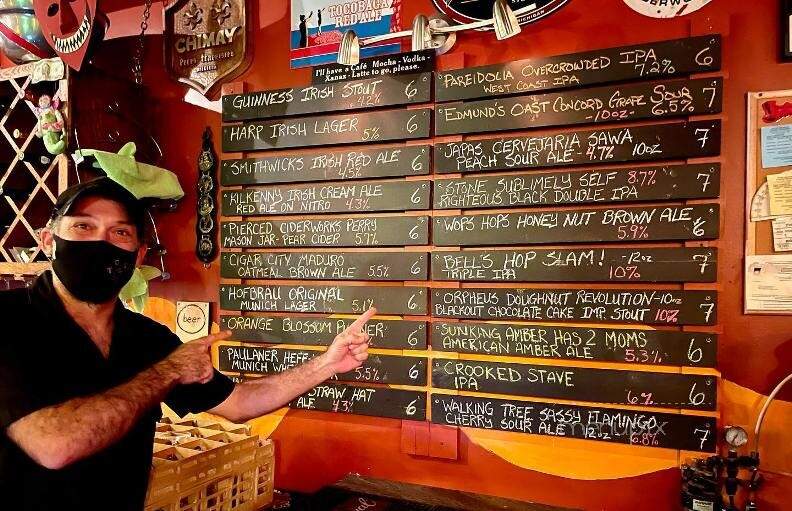 TOCOBAGA
RED ALE
CHIMAY
I'll have a Café Mocha - Vodka -
Xanax - Latte to go, please.
GUINNESS IRISH STOUT 4.2% 6
HARP IRISH LAGER 5% 6
SMITHWICKS IRISH RED ALE 6
4.5%
KILKENNY IRISH CREAM ALE 6
RED ALE ON NITRO 4.3%
PIERCED CIDERWORKS PERRY 6
MASON JAR - PEAR CIDER 5.7%
CIGAR CITY MADURO 6
OATMEAL BROWN ALE 5.5%
HOFBRAU ORIGINAL 6
MUNICH LAGER 5.1%
ORANGE BLOSSOM PILSNER 6
PAULANER HEFE
MUNICH 5.5% 6
STRAW HAT
ALE 4.3% 6
PAREIDOLIA OVERCROWDED IPA 6
WEST COAST IPA 7.2%
EDMUND'S OAST CONCORD GRAPE SOUR 7
-10oz- 6.5%
JAPAS CERVEJARIA SAWA 7
PEACH SOUR ALE - 4.7% 10oz
STONE SUBLIMELY SELF 8.7% 7
RIGHTEOUS BLACK DOUBLE IPA
WOPS HOPS HONEY NUT BROWN ALE 6
5.9%
BELL'S HOP SLAM! -12oz 7
TRIPLE IPA 10%
ORPHEUS DOUGHNUT REVOLUTION-10oz 7
BLACKOUT CHOCOLATE CAKE IMP. STOUT 10%
SUNKING AMBER HAS 2 MOMS 6
AMERICAN AMBER ALE 5.3%
CROOKED STAVE 6
IPA 6%
WALKING TREE SASSY FLAMINGO 7
CHERRY SOUR ALE 12oz 6.8%
beer
menupix